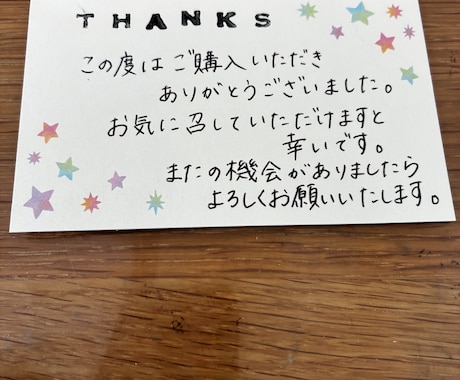 THANKS
この度は ご購入いただき
ありがとうございました。
お気に召していただけますと
幸いです。
またの機会がありましたら
よろしくお願いいたします。